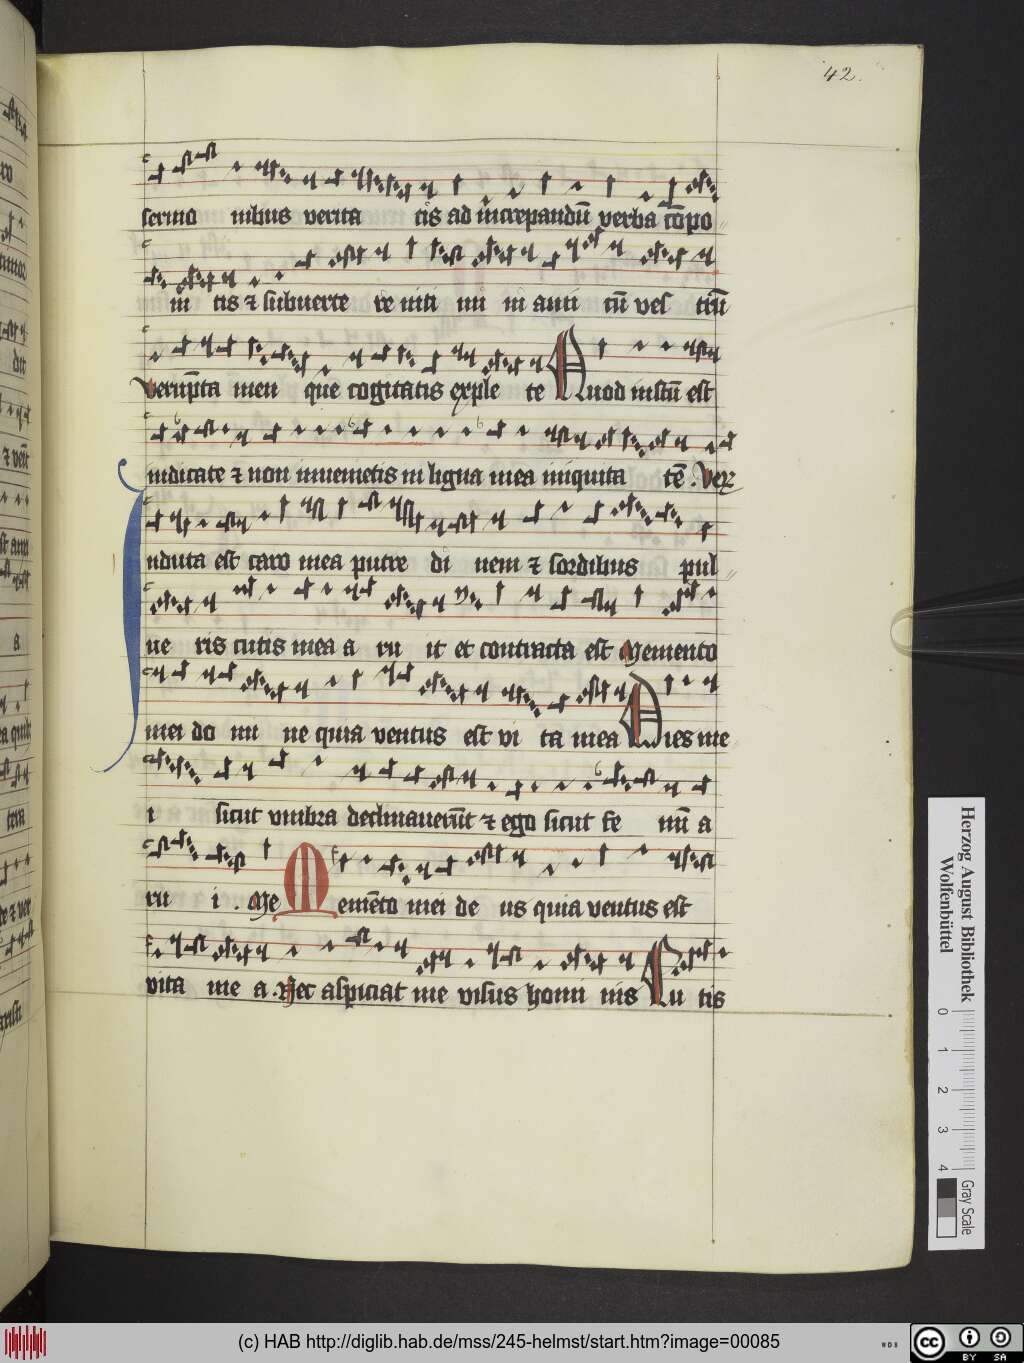 42.
sermo nibus verita tis ad increpandū verba cōpo
ni tis ⁊ subuerte re niti mi ni ami cū ves trū
verūpta men que cogitatis exple te Quod iustū est
iudicate ⁊ non inuenietis in ligua mea iniquita tē. Ver
Induta est caro mea putre di nem ⁊ sordibus pul
ue ris cutis mea a ru it et contracta est Memento
mei do mi ne quia ventus est vi ta mea Dies me
i sicut vmbra declinauerūt ⁊ ego sicut fe nū a
ru i. Me Memēto mei de us quia ventus est
vita me a. Nec aspiciat me visus homi nis Cu tis
Herzog August Bibliothek
Wolfenbüttel
0 1 2 3 4
Gray Scale
(c) HAB http://diglib.hab.de/mss/245-helmst/start.htm?image=00085
WDB
cc BY SA